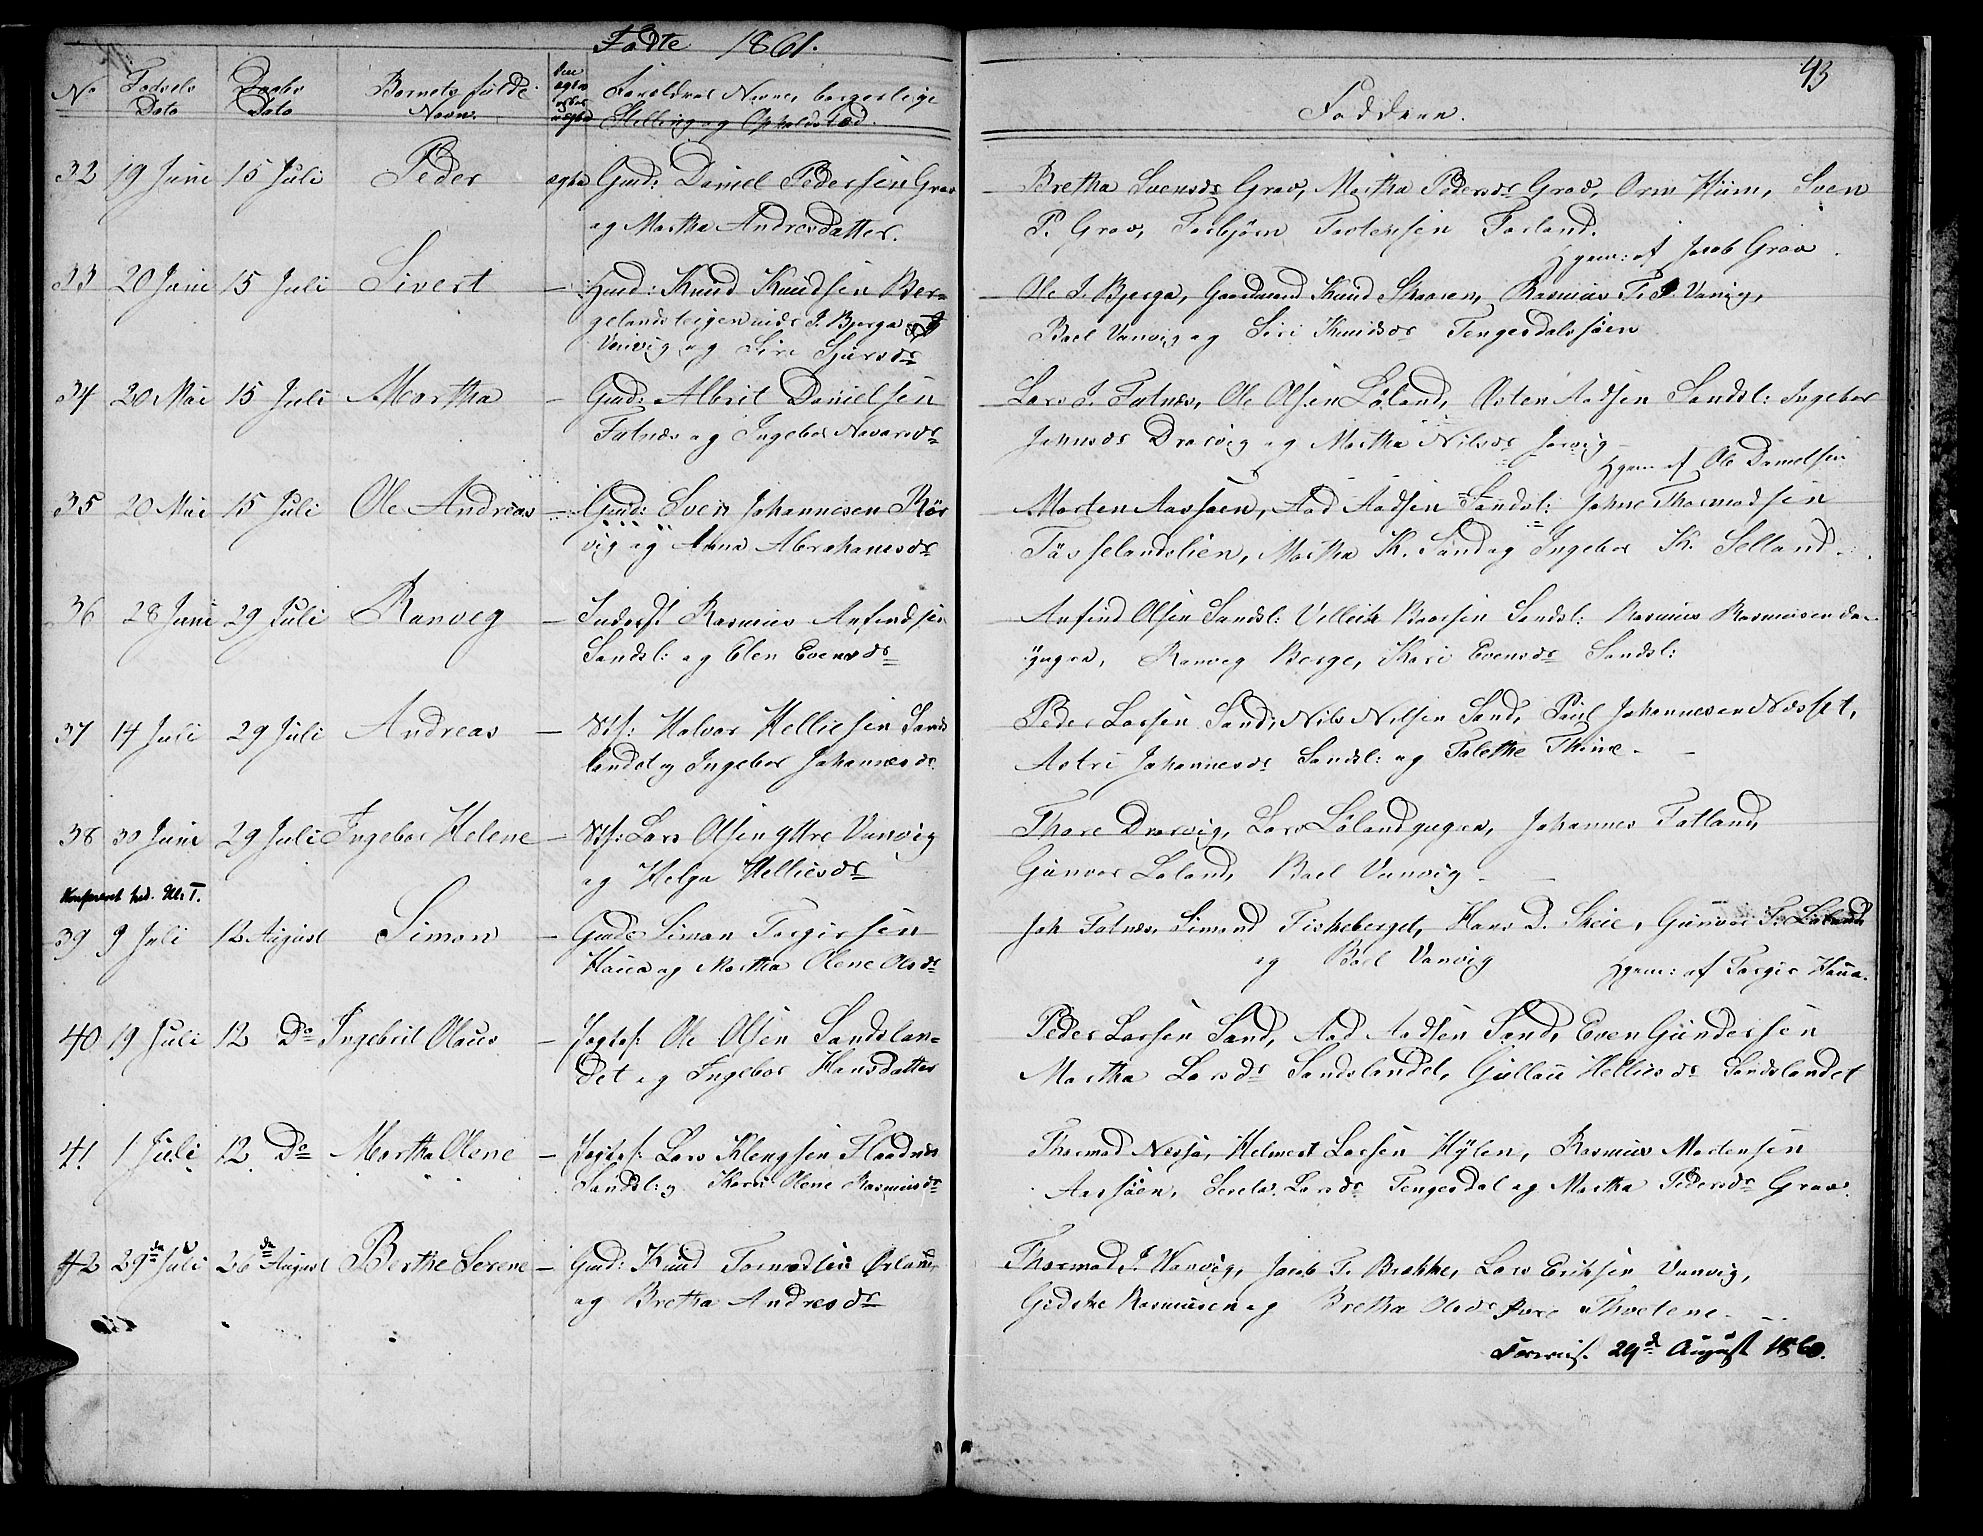 Fødte 1861.
43
No Fødsels Dato Daabs Dato Barnets fulde Navn. Om ægte eller uægte Forældres Navne, borgerlige Stilling og Opholdsted. Faddere.
32 19 Juni 15 Juli Peder ægte Gmd: Daniel Pedersen Grav
og Martha Andreasdatter.
Bretha Svensdr Grav, Martha Pedersdr Grav, Orm Hiim, Sven
P. Grav, Torbjørn Tostensen Forland.
Hjem: af Jacob Grav.
33 20 Juni 15 Juli Sivert — Huusm: Knud Knudsen Ber-
gelandsteigen
Vanvig og Siri Sjursdr
Ole J. Bjerga, Gaardmand Knud Skaaren, Rasmus T. Vanvig,
Boel Vanvig og Siri Knudsdr Tengesdalssøen
34 20 Mai 15 Juli Martha — Gmd: Albrit Danielsen
Fatnæs og Ingebor
Lars J. Fatnæs, Ole Olsen Løland, Osten Aadsen Sandsl: Ingebor
Johnsdr Drarvig og Martha Nilsdr Jorvig
Hjem: af Ole Danielsen
35 20 Mai 15 Juli Ole Andreas — Gmd: Sven Johannesen Rør-
vig og Anna Abrahamsdr
Morten Aarsøen, Aad Aadsen Sandsl: Johne Thormodsen
Tøsselandslien, Martha K. Sand og Ingebor K. Selland
36 28 Juni 29 Juli Ranveg — Inderst Rasmus Anfindsen
Sandsl: og Elen Evensdr
Anfind Olsen Sandsl: Villeik Baarsen Sandsl: Rasmus Rasmussen
Ranveg Berge, Kari Evensdr Sandsl:
37 14 Juli 29 Juli Andreas — Stf: Halvor Helliesen Sands
landet og Ingebor Johannesdr
Peder Larsen Sand, Nils Nilsen Sand, Paul Johannesen Næsset,
Astri Johannesdr Sandsl: og Talethe Thime
38 30 Juni 29 Juli Ingebor Helene — Stf: Lars Olsen yttre Vanvig
og Helga Helliesdr
Thore Drarvig, Lars Lølandgugen, Johannes Fatland,
Gunvor Løland, Boel Vanvig
Konfereret hid.
39 9 Juli 12 August Simon — Gmd Simon Torgersen
Haua og Martha Olene Olsdr
Joh Fatnæs, Simond Fiskeberget, Hans D. Skeie, Gunvor T. Løland
og Boel Vanvig
Hjem: af Torgir Haua.
40 19 Juli 12 Do Ingebrit Olaus — Ole Olsen Sandslan-
det og Ingebor Hansdatter
Peder Larsen Sand, Aad Aadsen Sand, Even Gundersen
Martha Larsdr Sandslandet, Gullau Helliesdr Sandslandet
41. 1 Juli 12. Do Martha Olene — Lars Klengsen Flaadnes
Sandsl: og Karn Olene Rasmusdr
Thormod Næssa, Helmert Larsen Hylen, Rasmus Mortensen
Aarsøen, Larsdr Tengesdal og Martha Pedersdr Grav.
42 29de Juli 26de August Berthe Serene — Gmd: Knud Tormodsen Ørland
og Bretha Andreasdr
Thormod J. Wanvig, Jacob T. Brekke, Lars Eriksen Vanvig,
Gidske Rasmusen og Bretha Olsdr
29de August 1860.